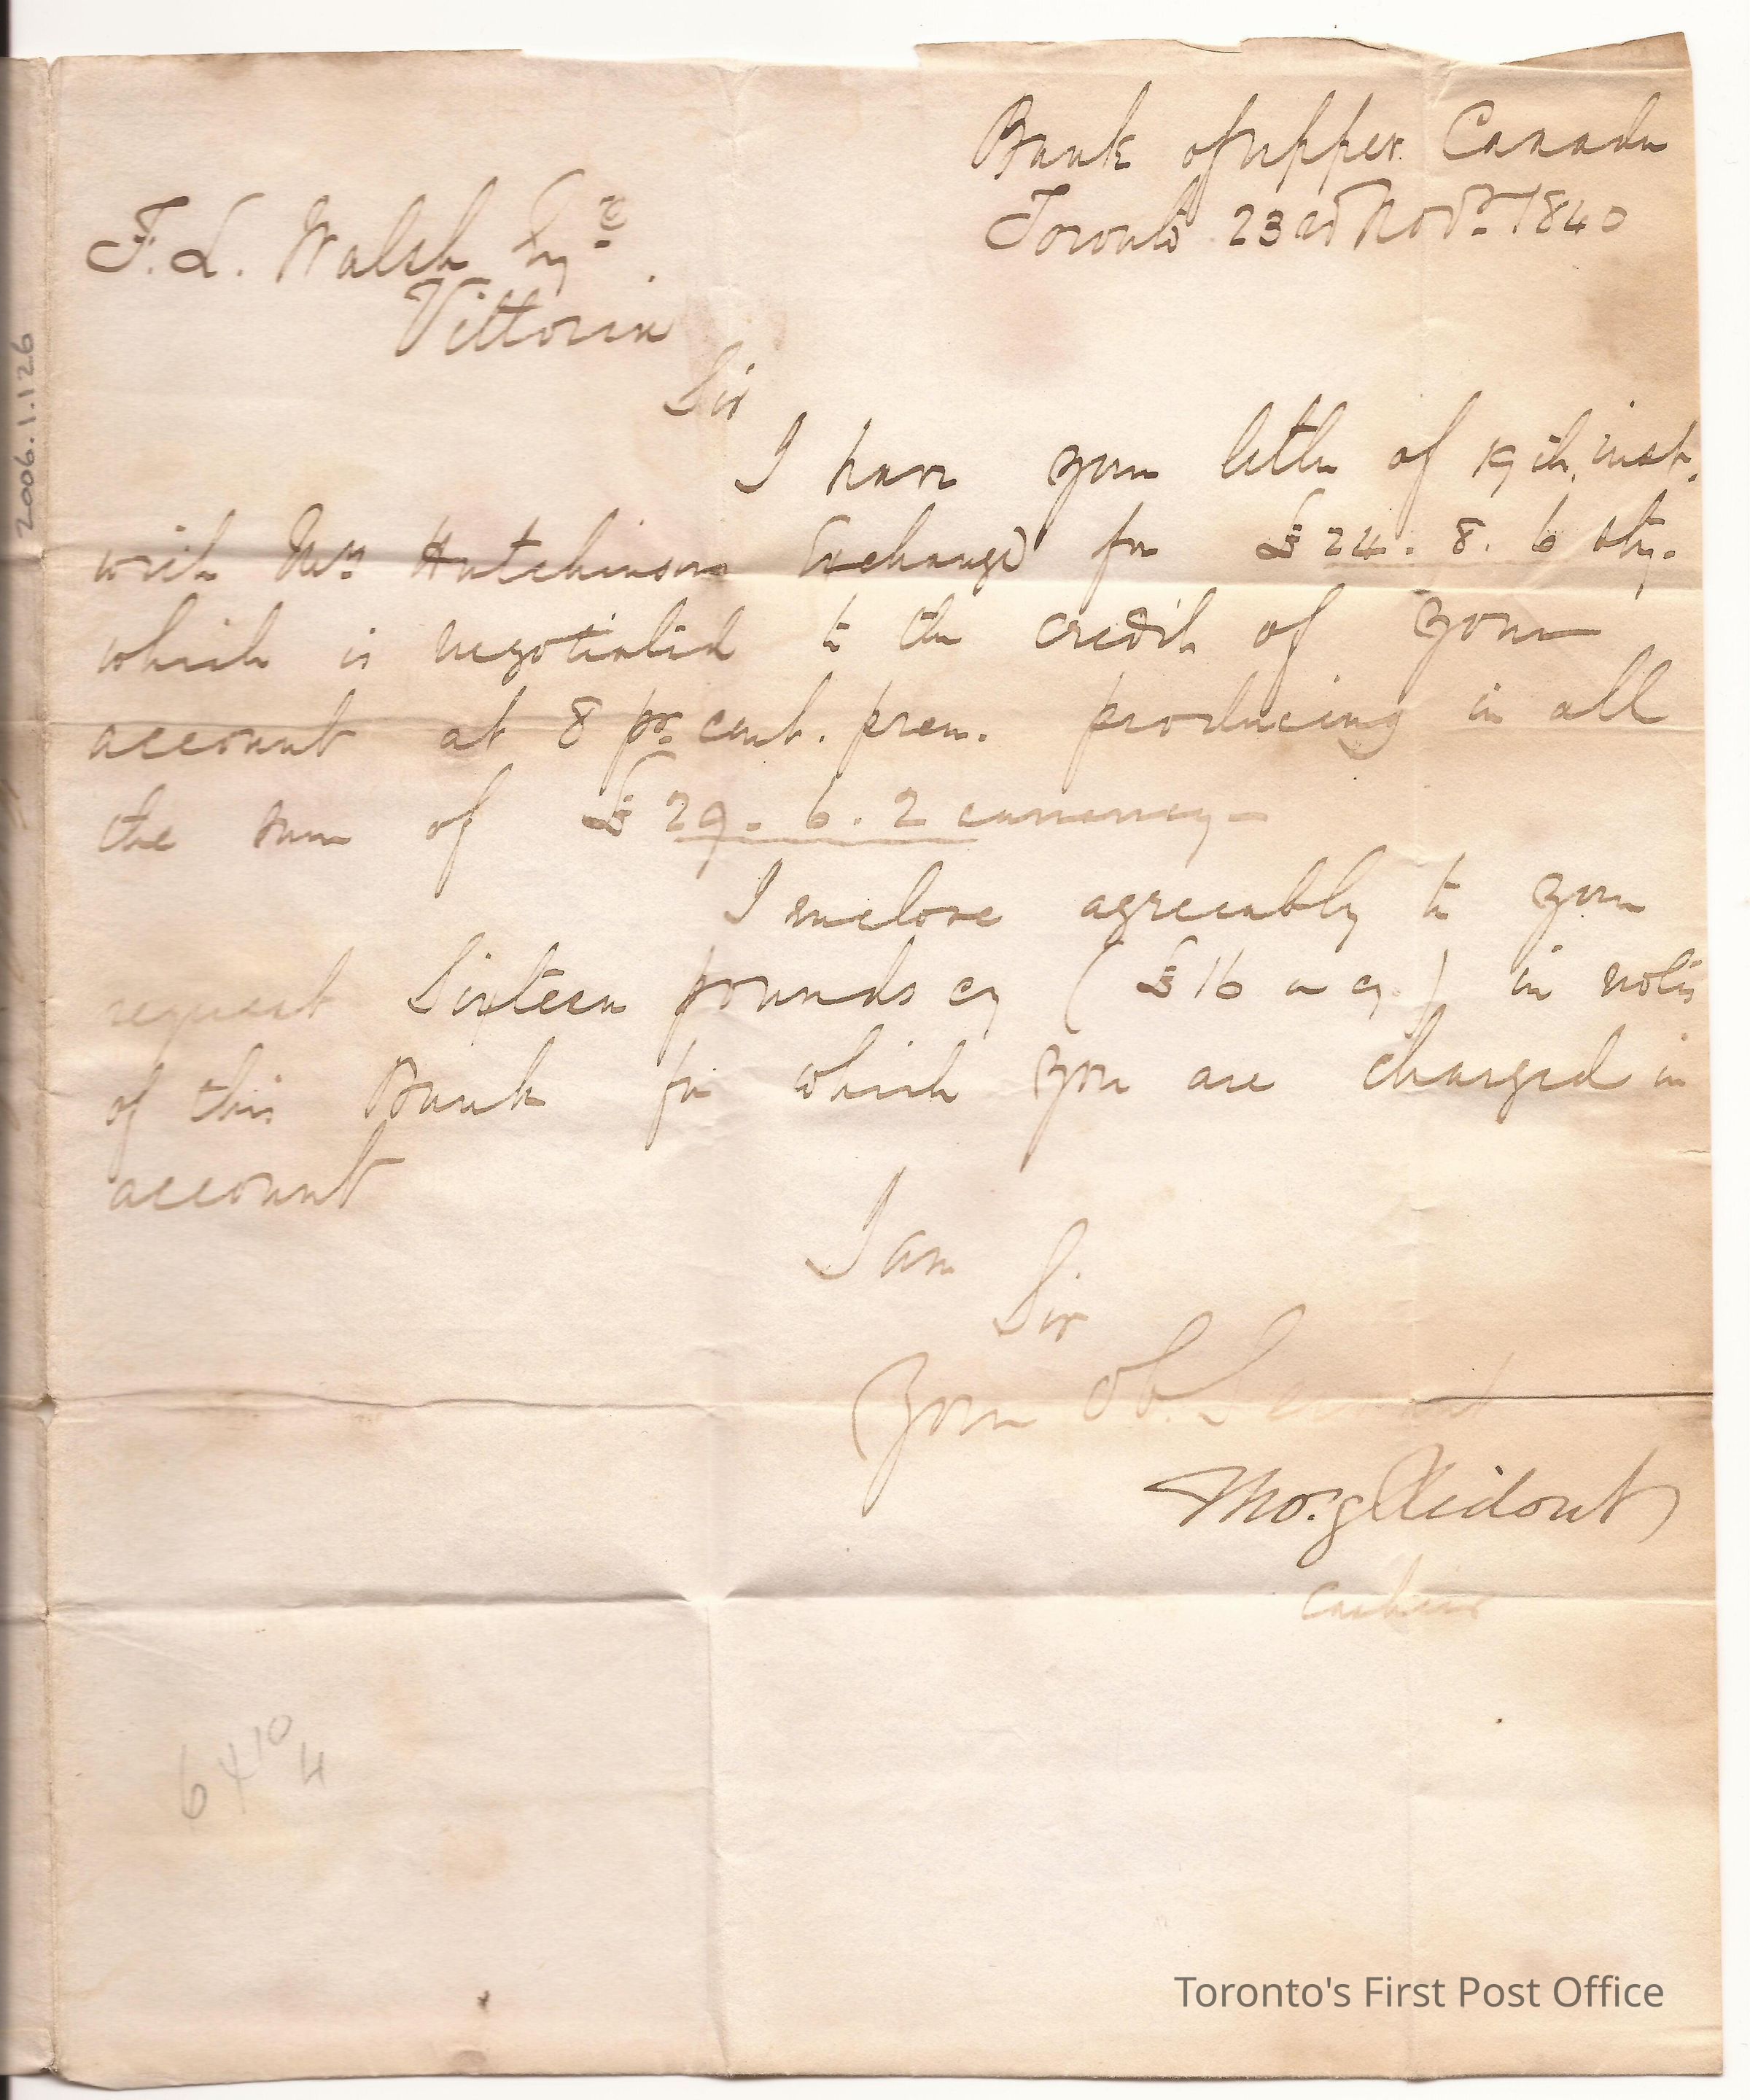 Bank of upper Canada
Toronto 23rd Novr. 1840
F. L. Walsh Esqre.
Vittoria
Sir
I have your letter of 19th. inst.
with Mrs Hutchinsons Exchange for £24. 8. 6 stg.
which is negotiated to the credit of your
account at 8 pr. cent. prem. producing in all
the sum of £29. 6. 2 currency-
I enclose agreeably to your
request Sixteen pounds cy (£16 cy.) in notes
of this Bank for which you are charged in
account
I am
Sir
Your Ob. Servant
Thos. G Ridout
Cashier
2006.1.126
Toronto's First Post Office